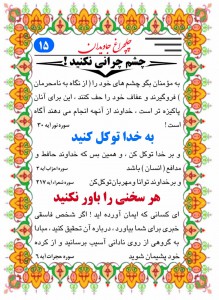 چلچراغ جاویدان
۱۵
چشم چرانی نکنید !
به مؤمنان بگو چشم های خود را ( از نگاه به نامحرمان
) فروگیرند و عفاف خود را حفظ کنند ، این برای آنان
پاکیزه تر است ، خداوند از آنچه انجام می دهند آگاه
است !
سوره نور/ آیه ۳۰
به خدا توکل کنید
و بر خدا توکل کن ، و همین بس که خداوند حافظ و
مدافع ( انسان ) باشد
سوره احزاب/ آیه ۳
و بر خداوند توانا و مهربان توکل کن
سوره شعراء/ آیه ۲۱۷
هر سخنی را باور نکنید
ای کسانی که ایمان آورده اید ! اگر شخص فاسقی
خبری برای شما بیاورد ، درباره آن تحقیق کنید ، مبادا
به گروهی از روی نادانی آسیب برسانید و از کرده
خود پشیمان شوید
سوره حجرات/ آیه ۶